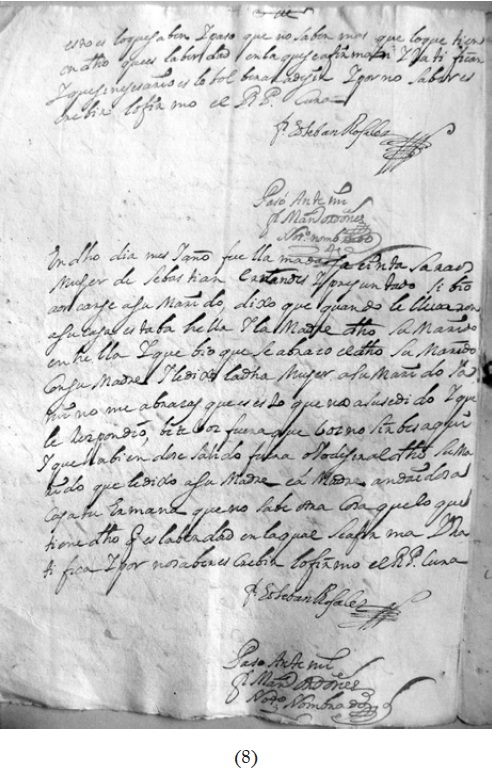 esto es lo que saben y caso que no saben mas que lo que tiene
en dho que es la berdad en la que se afirman y Rati fican
Y que si nesesario es lo bol beran a desir Y por no saber es
crebir lo firmo el R.P. Cura
fr Esteban Rosales
Pasó Ante mi
Manl Ordoñes
Noto nombrado
En dho dia mes Y año fue lla mada Jasinta
Muger de Sebastian Y preguntado si bio
a su Marido dixo que quando le lleuaron
a su casa estaba hella Y la Madre dho su Marido
en hella Y que bio que se abrazo el dho su Marido
Con su Madre Y le dixo la dha Muger a su Marido Y a
mi no me abrazas que es esto que no a susedido Y que
le Respondio, bete por fuera que bos no sirbes aqui
Y que abiendose salido fuera o lo desir al dho su Ma
rido que le dixo a su Madre ea Madre andando a
Casa tu Ermana que no sabe otra Cosa que lo que
tiene dho q es la berdad en la qual se afir ma Y Ra
ti fica Y por no saber es Crebir lo firmo el R.P. Cura
fr Esteban Rosales
Paso Ante mi
Manl Ordoñes
Noto Nombrado
(8)